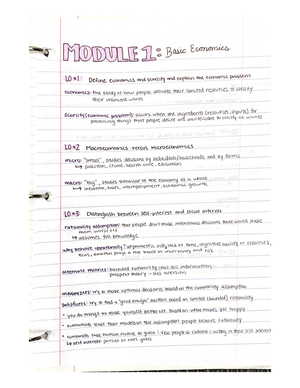 MODULE 1: Basic Economics
LO #1 Define economics and scarcity and explain the economic problem
Economics: the study of how people allocate their limited resources to satisfy
their unlimited wants
Scarcity (economic problem): occurs when the ingredients (resources, inputs) for
producing things that people desire are insufficient to satisfy all wants
LO #2 Macroeconomics versus microeconomics
micro: "small", studies decisions by individuals/households and by firms
↳ pollution, crime, health care, education
macro: "big", studies behavior of the economy as a whole
↳ inflation, taxes, unemployment, economic growth
LO #3 Distinguish between self-interest and social interest
rationality assumption: that people don't make intentional decisions that would make
them worse off
↳ assumes full knowledge
why behave irrationally?
alternate theories: bounded rationality
prospect theory - loss aversion
maximizers: try to make rational decisions based on the rationality assumption
satisficers: try to find a "good enough" solution based on limited (bounded) rationality
* you do things to make yourself better off based on what makes you happy
* economists base their models on the assumption people behave rationally